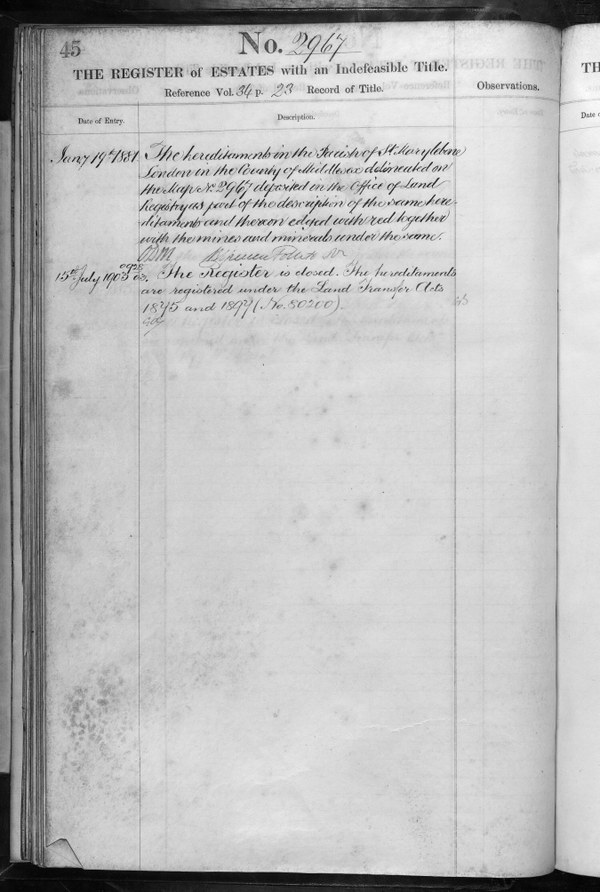 45
No. 2967
THE REGISTER of ESTATES with an Indefeasible Title.
Reference Vol. 34 p. 23 Record of Title.
Observations.
Date of Entry.
Description.
Jany 19th 1881. The hereditaments in the Parish of St Marylebone
London in the County of Middlesex delineated on
the Map No. 2967 deposited in the Office of Land
Registry as part of the description of the same here
ditaments and thereon edged with red together
with the mines and minerals under the same.
15th July 1903. The Register is closed. The hereditaments
are registered under the Land Transfer Acts
1875 and 1897 (No. 80200).
TH
Date o